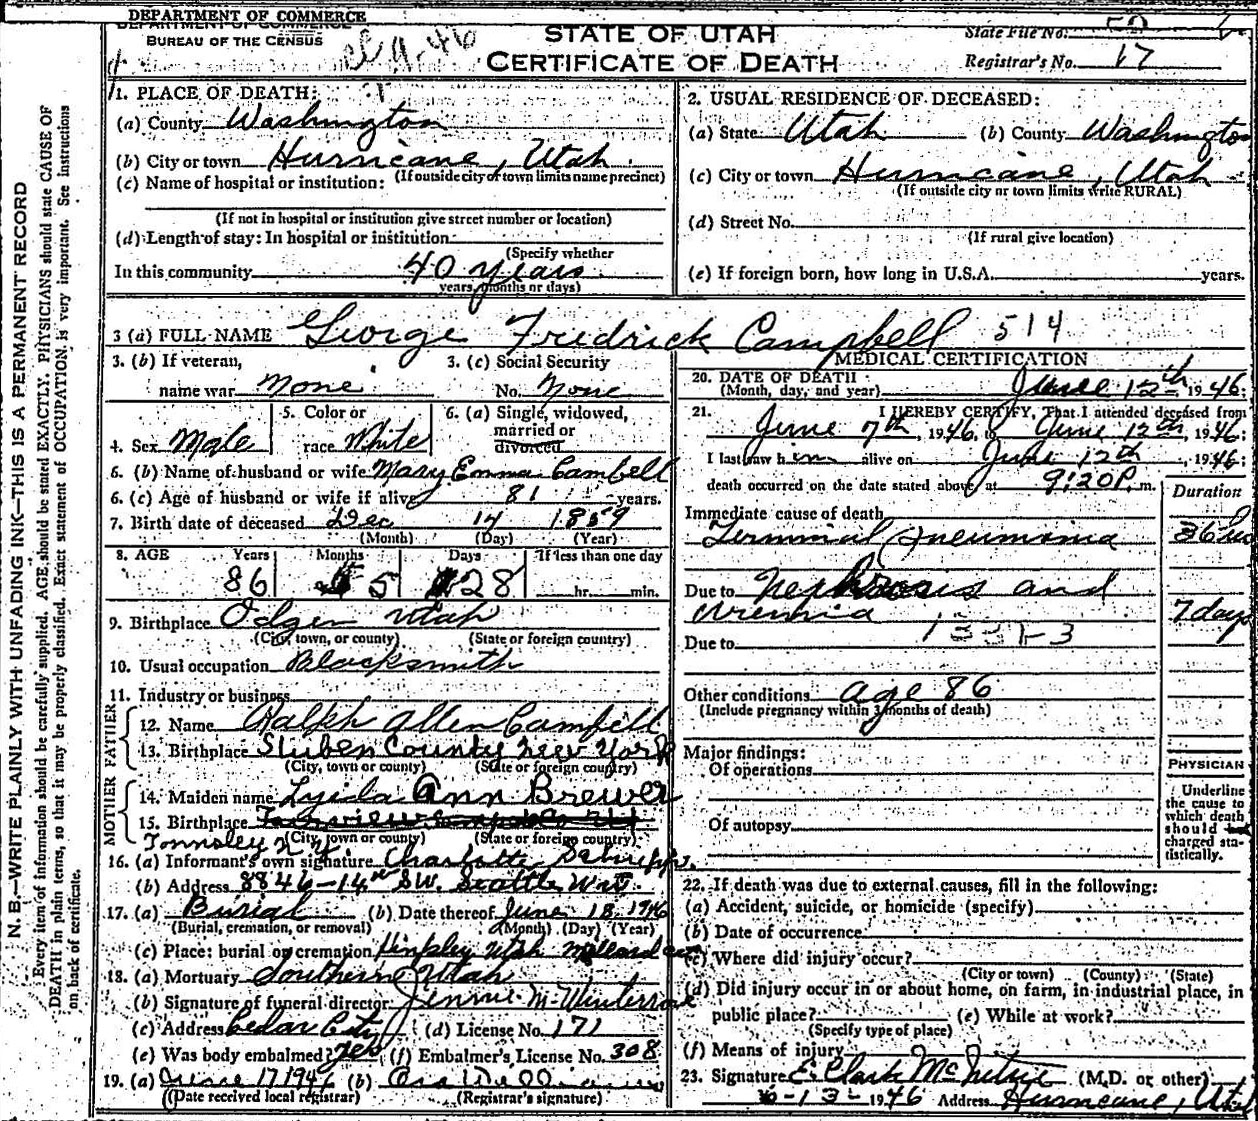 DEPARTMENT OF COMMERCE
BUREAU OF THE CENSUS
STATE OF UTAH
CERTIFICATE OF DEATH
State File No. 52
Registrar's No. 17
N. B.—WRITE PLAINLY WITH UNFADING INK—THIS IS A PERMANENT RECORD
Every item of information should be carefully supplied. AGE should be stated EXACTLY. PHYSICIANS should state CAUSE OF
DEATH in plain terms, so that it may be properly classified. Exact statement of OCCUPATION is very important. See instructions
on back of certificate.
1. PLACE OF DEATH:
(a) County Washington
(b) City or town Hurricane, Utah
(If outside city or town limits name precinct)
(c) Name of hospital or institution:
(If not in hospital or institution give street number or location)
(d) Length of stay: In hospital or institution
(Specify whether
In this community 40 years
years, months or days)
2. USUAL RESIDENCE OF DECEASED:
(a) State Utah (b) County Washington
(c) City or town Hurricane, Utah
(If outside city or town limits write RURAL)
(d) Street No.
(If rural give location)
(e) If foreign born, how long in U.S.A. years.
3 (a) FULL NAME George Fredrick Campbell 514
3. (b) If veteran, name war None
3. (c) Social Security No. None
4. Sex Male
5. Color or race White
6. (a) Single, widowed, married or divorced
6. (b) Name of husband or wife Mary Emma Cambell
6. (c) Age of husband or wife if alive 81 years.
7. Birth date of deceased Dec 14 1859
(Month) (Day) (Year)
8. AGE Years Months Days If less than one day
86 5 28 hr. min.
9. Birthplace Odgen Utah
(City, town, or county) (State or foreign country)
10. Usual occupation Blacksmith
11. Industry or business
FATHER
12. Name Ralph Allen Campbell
13. Birthplace Stuben County New York
(City, town or county) (State or foreign country)
MOTHER
14. Maiden name Lyida Ann Brewer
15. Birthplace
(City, town or county) (State or foreign country)
16. (a) Informant's own signature Charlotte
(b) Address 8846-14 SW. Seattle
17. (a) Burial (b) Date thereof June 18 1946
(Burial, cremation, or removal) (Month) (Day) (Year)
(c) Place: burial or cremation Hinkley Utah Millard co
18. (a) Mortuary Southern Utah
(b) Signature of funeral director Jennie M. Winterrose
(c) Address Cedar City (d) License No. 171
(e) Was body embalmed? Yes (f) Embalmer's License No. 308
19. (a) June 17 1946 (b)
(Date received local registrar) (Registrar's signature)
MEDICAL CERTIFICATION
20. DATE OF DEATH
(Month, day, and year) June 12th 1946;
21. I HEREBY CERTIFY, That I attended deceased from
June 7th, 1946, to June 12th, 1946;
I last saw him alive on June 12th, 1946;
death occurred on the date stated above at 9:20 P. m.
Duration
Immediate cause of death
Terminal Pneumonia 36
Due to Nephrosis and
Uremia 7 days
Due to
Other conditions age 86
(Include pregnancy within 3 months of death)
Major findings:
Of operations
Of autopsy
PHYSICIAN
Underline
the cause to
which death
should be
charged sta-
tistically.
22. If death was due to external causes, fill in the following:
(a) Accident, suicide, or homicide (specify)
(b) Date of occurrence
(c) Where did injury occur?
(City or town) (County) (State)
(d) Did injury occur in or about home, on farm, in industrial place, in
public place? (e) While at work?
(Specify type of place)
(f) Means of injury
23. Signature E. Clark McIntire (M.D. or other)
6-13-1946 Address Hurricane, Utah